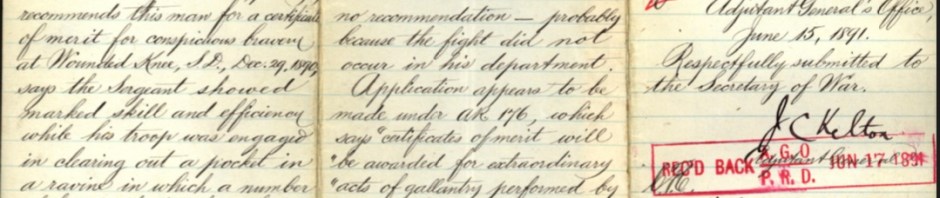 recommends this man for a certificate
of merit for conspicuous bravery
at Wounded Knee, S.D., Dec. 29, 1890,
says the Sergeant showed
marked skill and efficiency
while his troop was engaged
in clearing out a pocket in
a ravine in which a number
no recommendation — probably
because the fight did not
occur in his department.
Application appears to be
made under AR 176, which
says "certificates of merit will
"be awarded for extraordinary
"acts of gallantry performed by
Adjutant General's Office,
June 15, 1891.
Respectfully submitted to
the Secretary of War.
J C Kelton
Adjutant General
REC'D BACK A.G.O. JUN 17 1891
P. R. D.